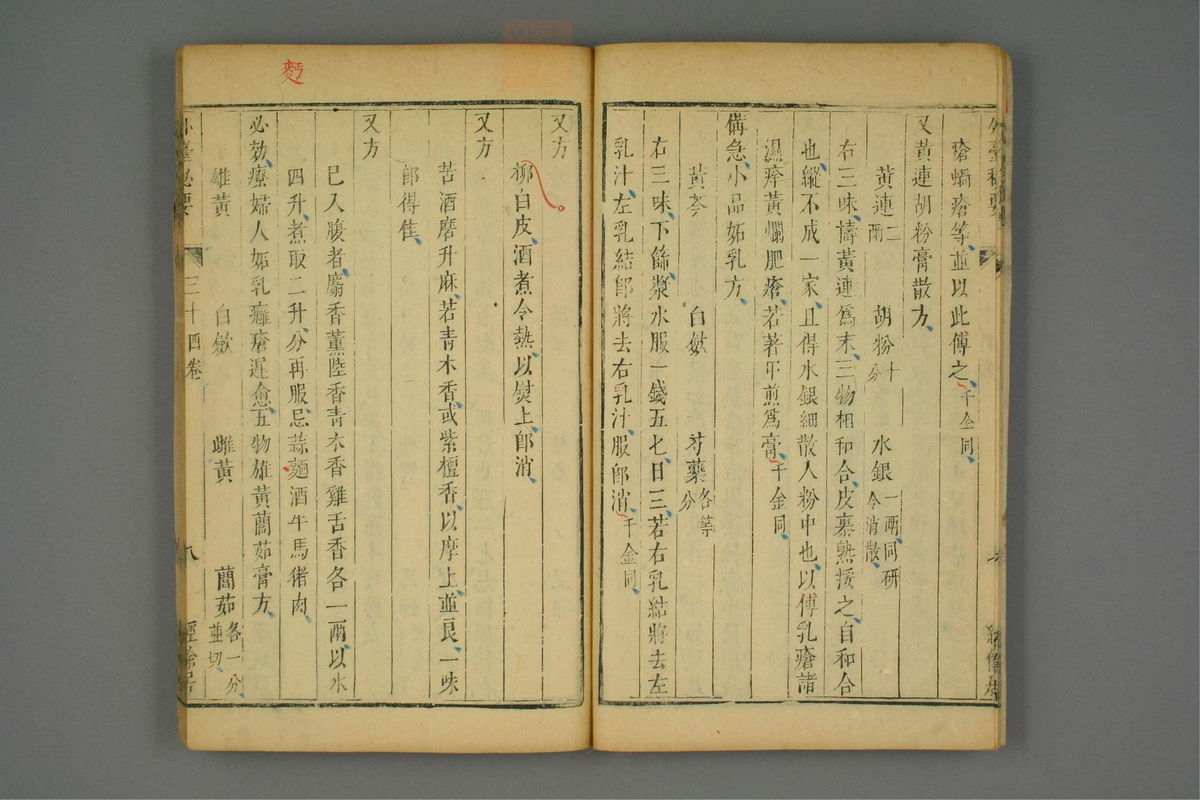 外臺秘要
瘡蝸瘡等並以此傅之千金同
又黃連胡粉膏散方
黃連二兩 胡粉十分 水銀一兩同研令消散
右三味擣黃連爲末三物相和合皮裹熟挼之自和合
也縱不成一家且得水銀細散入粉中也以傅乳瘡諸
濕癢黃爛肥瘡若著甲煎爲膏千金同
備急小品妬乳方
黃芩 白斂 芍藥各等分
右三味下篩漿水服一錢五七日三若右乳結將去左
乳汁左乳結即將去右乳汁服即消千金同
又方
柳白皮酒煮令熱以熨上即消
又方
苦酒磨升麻若青木香或紫檀香以摩上並良一味
即得佳
又方
已入腹者麝香薰陸香青木香雞舌香各一兩以水
四升煮取二升分再服忌蒜麵酒牛馬猪肉
麫
必効療婦人妬乳癰瘡遲愈五物雄黃䕡茹膏方
雄黃 白斂 雌黃 䕡茹各一分並切
外臺秘要 三十四卷 八 經餘居